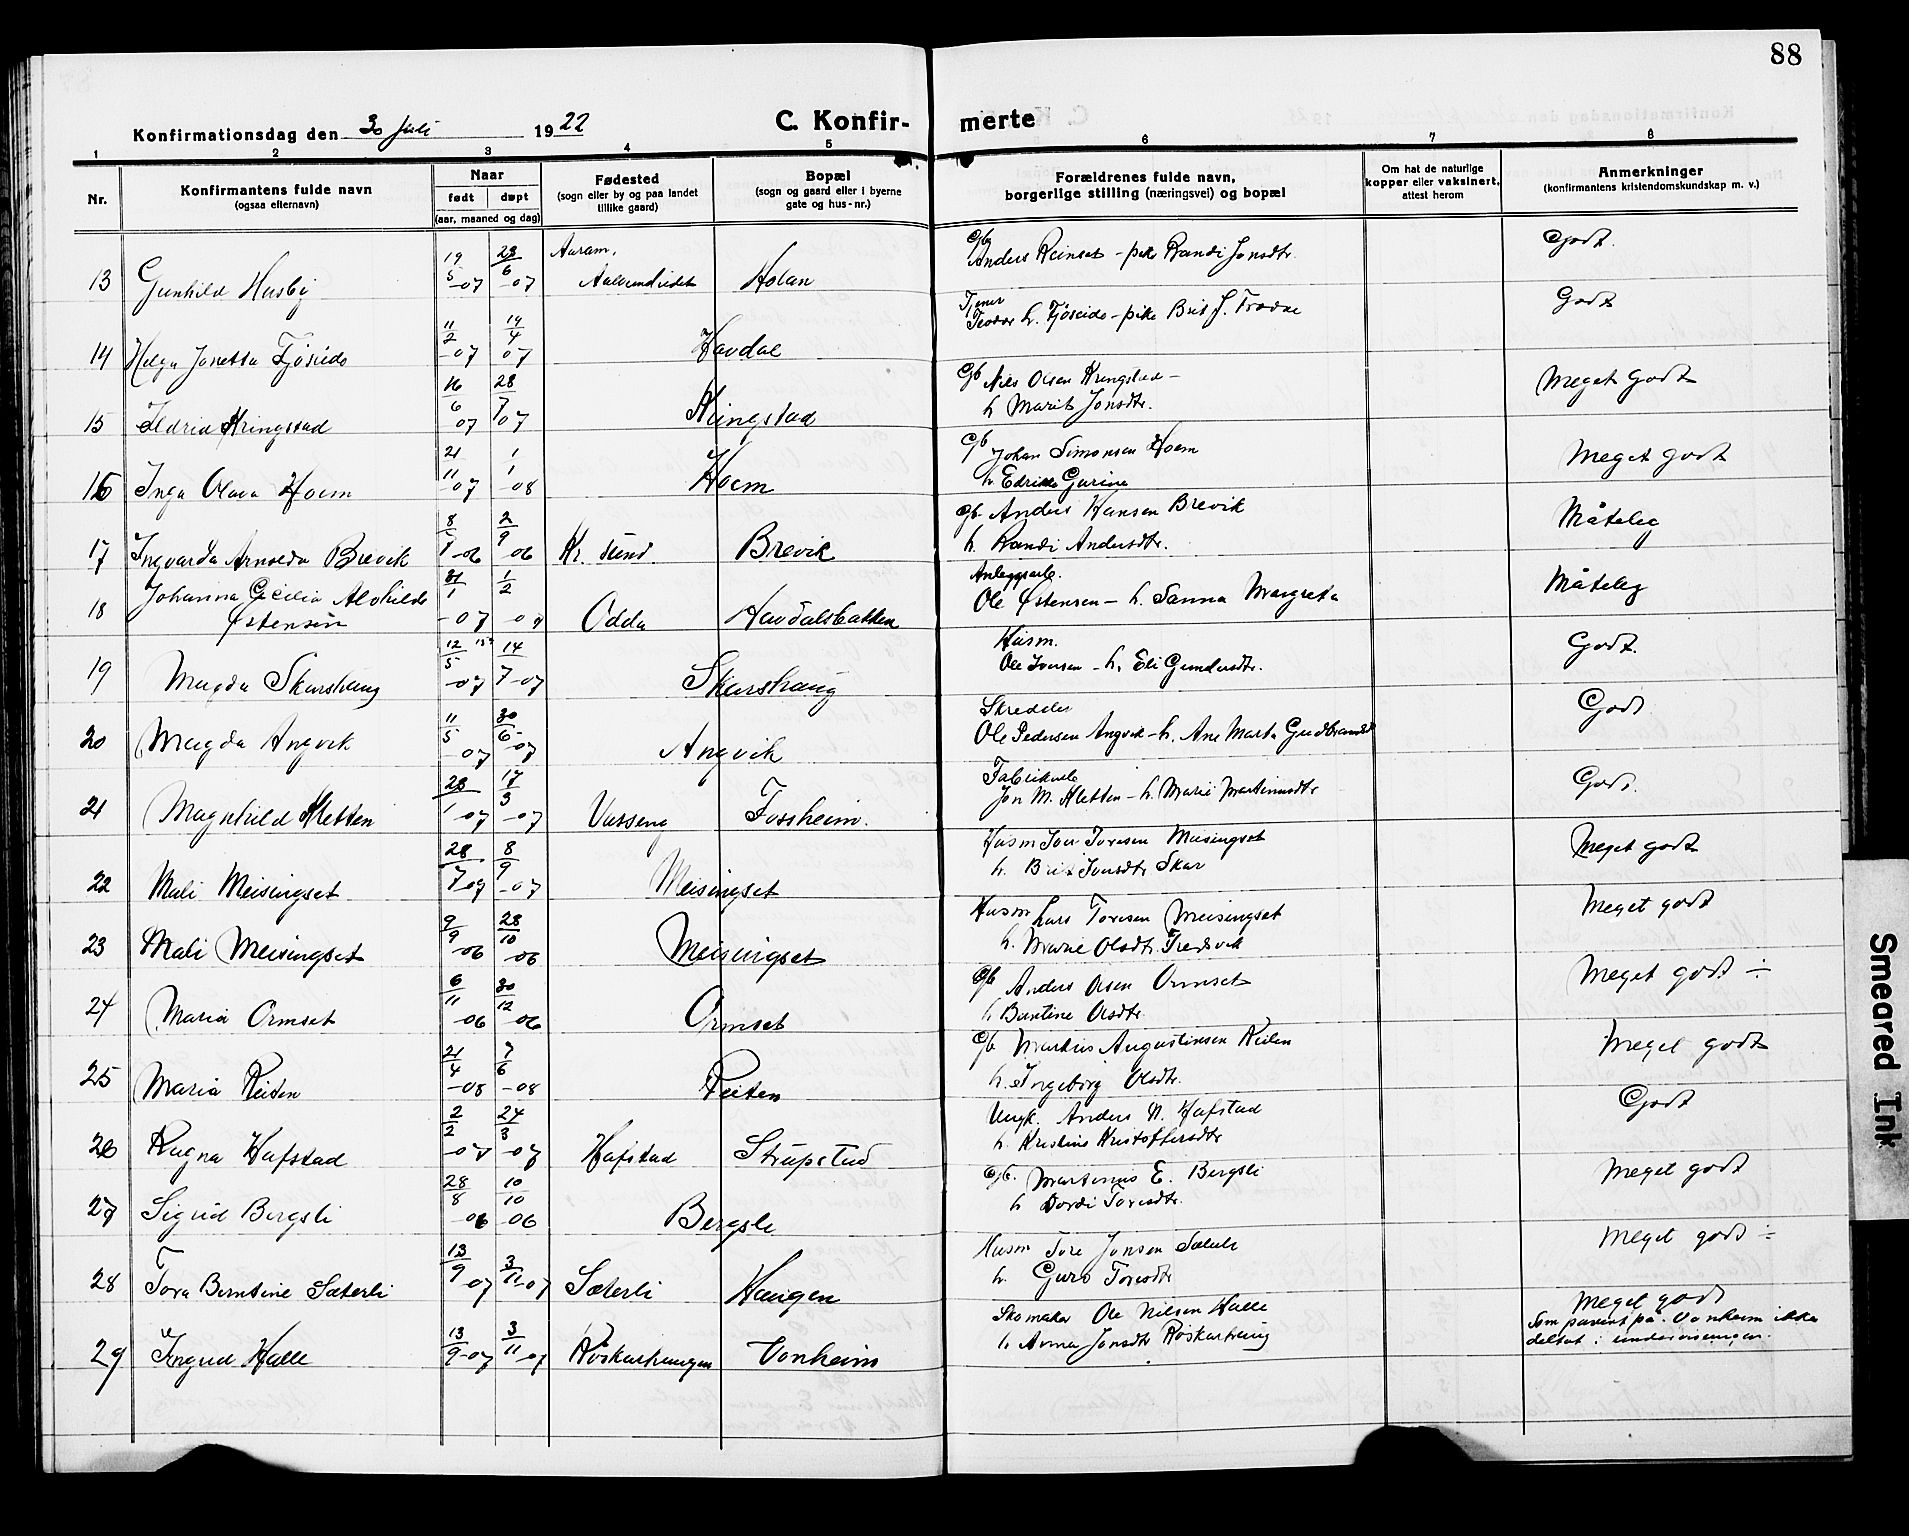 88
Konfirmationsdag den 30 Juli 1922
C. Konfir-
merte
1 2 3 4 5 6 7 8
Nr.
Konfirmantens fulde navn
(ogsaa efternavn)
Naar
født døpt
(aar, maaned og dag)
Fødested
(sogn eller by og paa landet
tillike gaard)
Bopæl
(sogn og gaard eller i byerne
gate og hus-nr.)
Forældrenes fulde navn,
borgerlige stilling (næringsvei) og bopæl
Om hat de naturlige
kopper eller vaksinert,
attest herom
Anmerkninger
(konfirmantens kristendomskundskap m. v.)
13 Gunhild Husby 19/5-07 23/6-07 Holan
Anders Reinset - pike Randi Jonsdtr. Godt.
14 Helga Jonetta Fjøseide 11/2-07 14/4 07 Havdal
Fjøseide - pike Brit J. Trodae Godt
15 Ildrid Kringstad 16/6 07 28/7 07 Kringstad
Gb Nils Olsen Kringstad -
h Marit Jonsdtr. Meget Godt
16 Inga Olava Hoem 21/11-07 1/1-08 Hoem
Gb Johan Simonsen Hoem
h Gurine Meget godt
17 Ingvarda Arnolda Brevik 8/7-06 2/9-06 Kr. sund Brevik
Gb. Anders Hansen Brevik
h. Randi Andersdtr. Måteleg
18 Johanna Cecilia Alvhilde
Østensen 31/1-07 1/2-07 Odda Havdalsbakken
Anleggsarb.
Ole Østensen - h. Sanna Margreta Måteleg
19 Magda Skarshaug 12/5-07 14/7-07 Skarshaug
Husm.
Ole Iversen - h. Eli Gundersdtr. Godt.
20 Magda Angvik 11/5-07 30/6-07 Angvik
Skredder
Ole Pedersen Angvik - h. Ane Marta Gudbrandsd Godt
21 Magnhild Kletten 23/1-07 17/3-07 Vasseng Fossheim.
Fabrikarb
Jon M. Kletten - h. Marie Martinusdtr Godt.
22 Mali Meisingset 28/7 07 8/9-07 Meisingset
Husm Iver Toresen Meisingset
h. Brit Iversdtr Skar Meget godt
23 Mali Meisingset 9/9-06 28/10-06 Meisingset
Husm Lars Toresen Meisingset
h. Marie Olsdtr. Tredsvik Meget godt
24 Maria Ormset 6/11-06 30/12-06 Ormset
Gb Anders Olsen Ormset
h Bentine Olsdtr Meget godt ÷
25 Maria Reiten 21/4-08 7/6-08 Reiten
Gb Markus Augustinsen Reiten
h. Ingeborg Olsdtr. Meget godt
26 Ragna Hafstad 2/2-07 24/3-07 Hafstad Strupstad
Ungk. Anders N. Hafstad
h. Kristine Kristoffersdtr Godt
27 Sigrid Bergsli 28/8-06 10/10-06 Bergsli
Gb. Martinus E. Bergsli
h Dordi Toresdtr. Meget godt
28 Tora Berntine Sæterli 13/9-07 3/11-07 Sæterli Haugen
Husm Tore Jonsen Sæterli
h. Guro Toresdtr Meget godt ÷
29 Ingrid Halle 13/9-07 3/11-07 Røskarhaugen Vonheim
Skomaker Ole Nilsen Halle
h Anna Jonsdtr Røskarhaug Meget godt
Vonheim ikke
deltat i undervisningen.
Smeared Ink